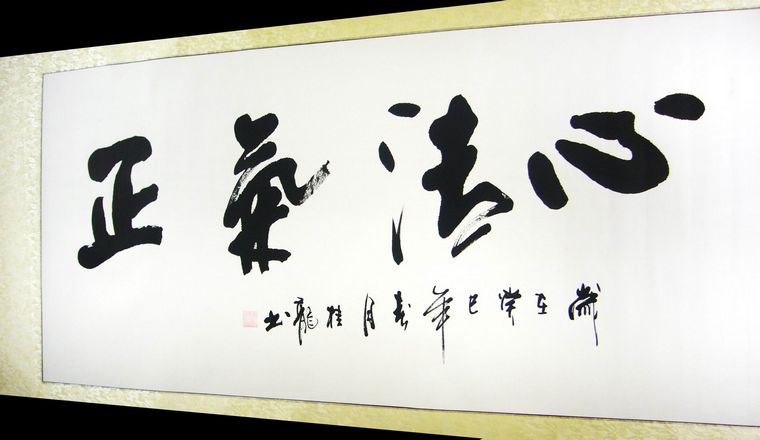 心清氣正
歲在癸巳年春月桂龍书